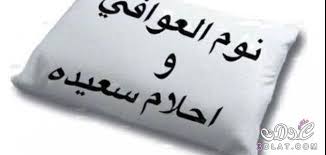 نوم العوافي
و
احلام سعيده
عدلات
3DLAT.COM